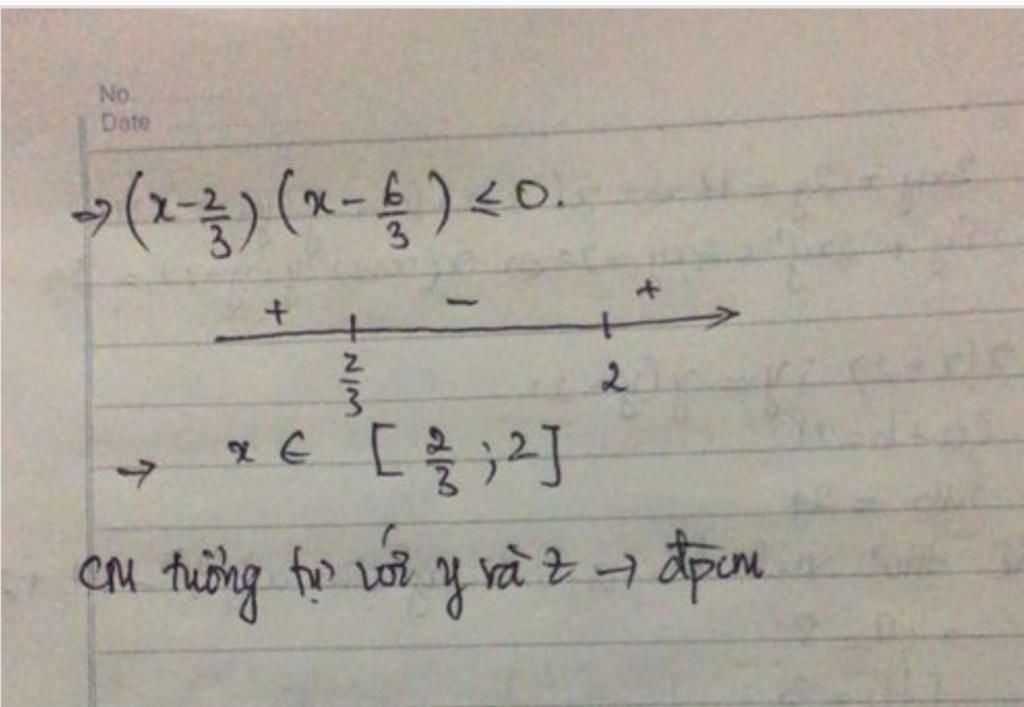 No.
Date
→ (x - 2/3) (x - 6/3) ≤ 0.
+ - +
2/3 2
→ x ∈ [2/3 ; 2]
CM tương tự với y và z → đpcm